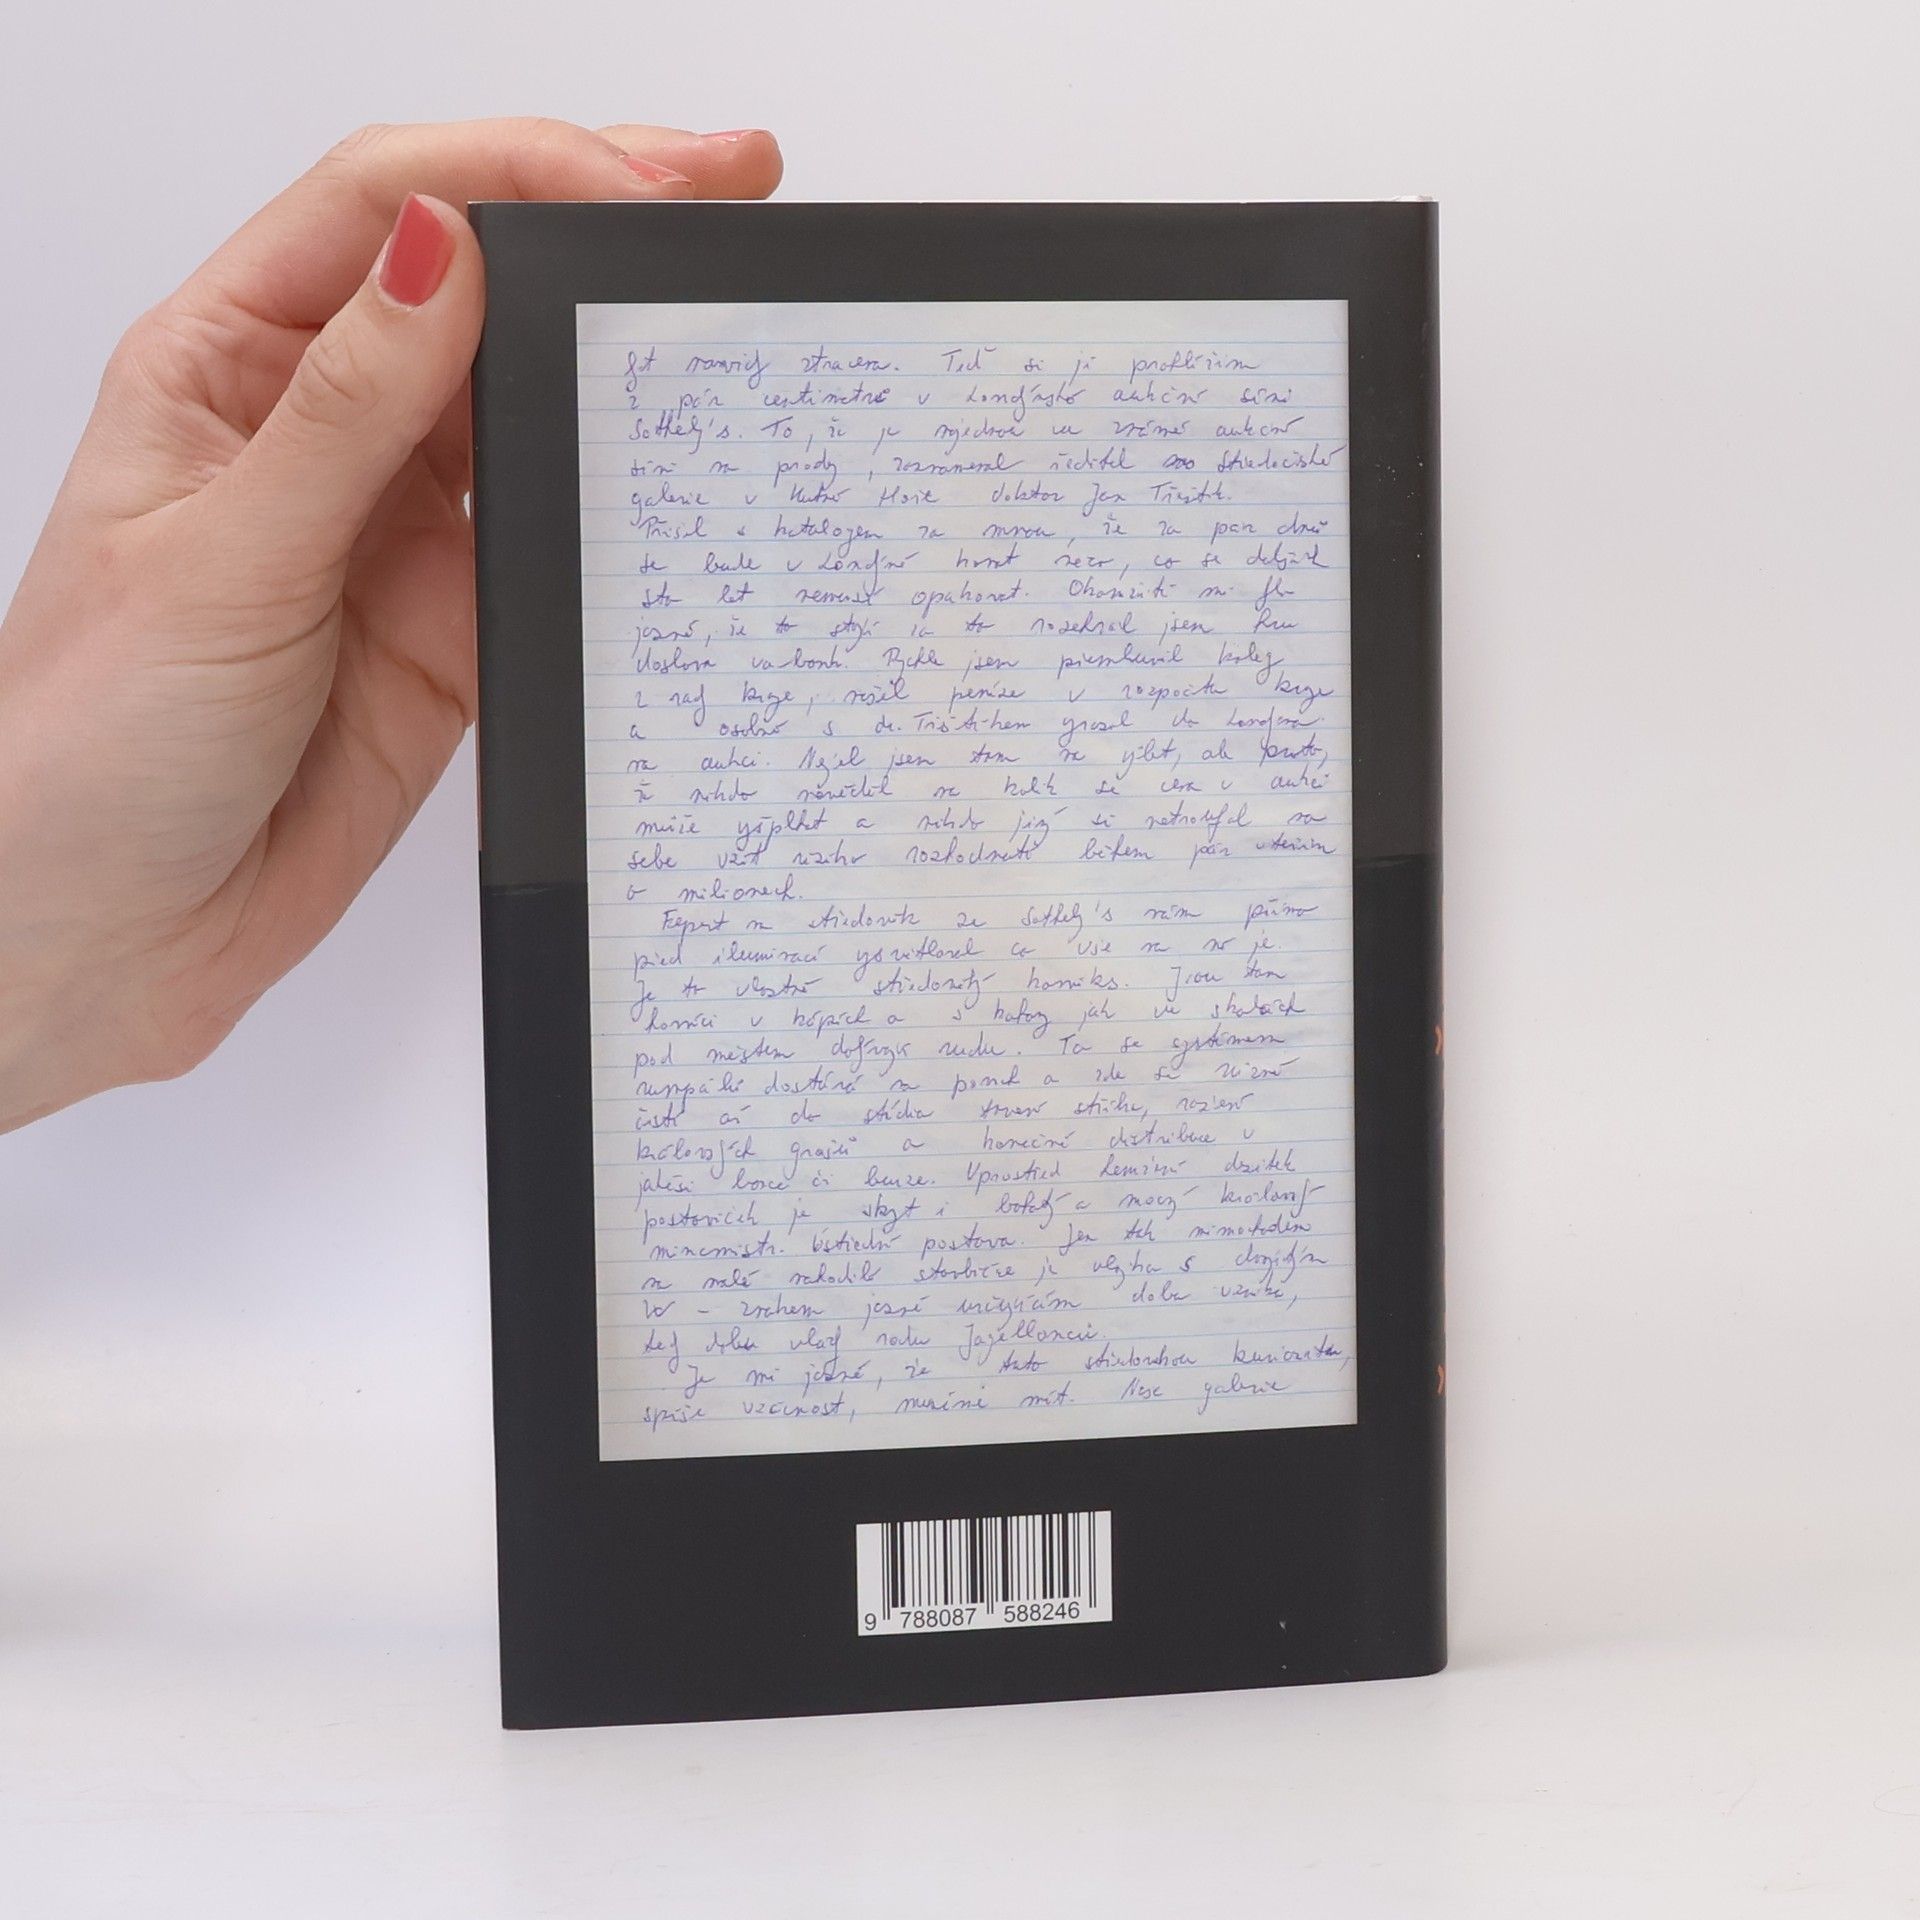 být navždy ztracena. Teď si ji prohlížím
z pár centimetrů v Londýnské aukční síni
Sothely's. To, že je najednou ve známé aukční
síni na prodej, zaznamenal ředitel Středočeské
galerie v Kutné Hoře doktor Jan Třeštík.
Přišel s katalogem za mnou, že za pár dnů
se bude v Londýně konat něco, co se dalších
sto let nemusí opakovat. Okamžitě mi bylo
jasné, že stojí za to rozehrál jsem hru
doslova va-bank. Rychle jsem přemluvil kolegy
z rady kraje, našel peníze v rozpočtu kraje
a osobně s dr. Třeštíkem vyrazil do Londýna
na aukci. Nejel jsem tam na výlet, ale proto,
že nikdo nevěděl na kolik se cena v aukci
může vyšplhat a nikdo jiný si netroufal na
sebe vzít riziko rozhodnutí během pár vteřin
o milionech.
Expert na středověk ze Sothely's nám přímo
před iluminací vysvětloval co vše na ní je.
Je to vlastně středověký komiks. Jsou tam
horníci v kápích a s kahany jak ve skalách
pod městem dobývají rudu. Ta se systémem
rumpálů dostává na povrch a zde se různě
čistí až do stádia tavení stříbra, ražení
královských grošů a konečné distribuce v
jakési borce či burze. Uprostřed hemžení desítek
postaviček je skryt i bohatý a mocný královský
mincmistr. Ústřední postava. Jen tak mimochodem
na malé nahodilé stavbičce je vlajka s dvojitým
W - znakem jasně určujícím dobu vzniku,
tedy dobu vlády rodu Jagellonců.
Je mi jasné, že tuto středověkou kuriozitu,
spíše vzácnost, musíme mít. Naše galerie
9 788087 588246